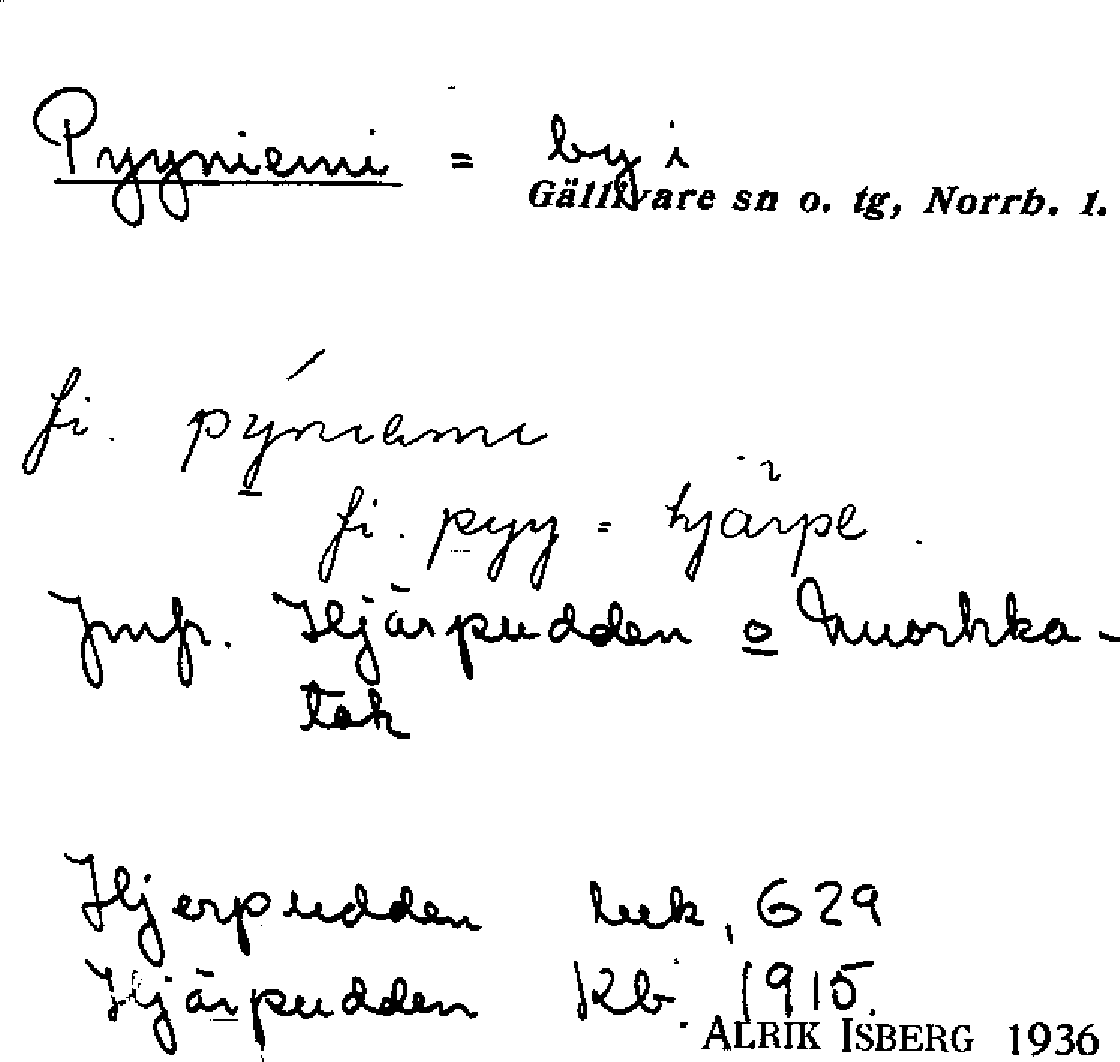 Pyyniemi = by i
Gällivare sn o. tg, Norrb. l.
fi. pýniemi
fi. pyy = hjärpe.
Jmfr. Hjärpudden o Muorhka-
tak
Hjerpudden luk, 629
Hjärpudden Kb. 1915.
ALRIK ISBERG 1936